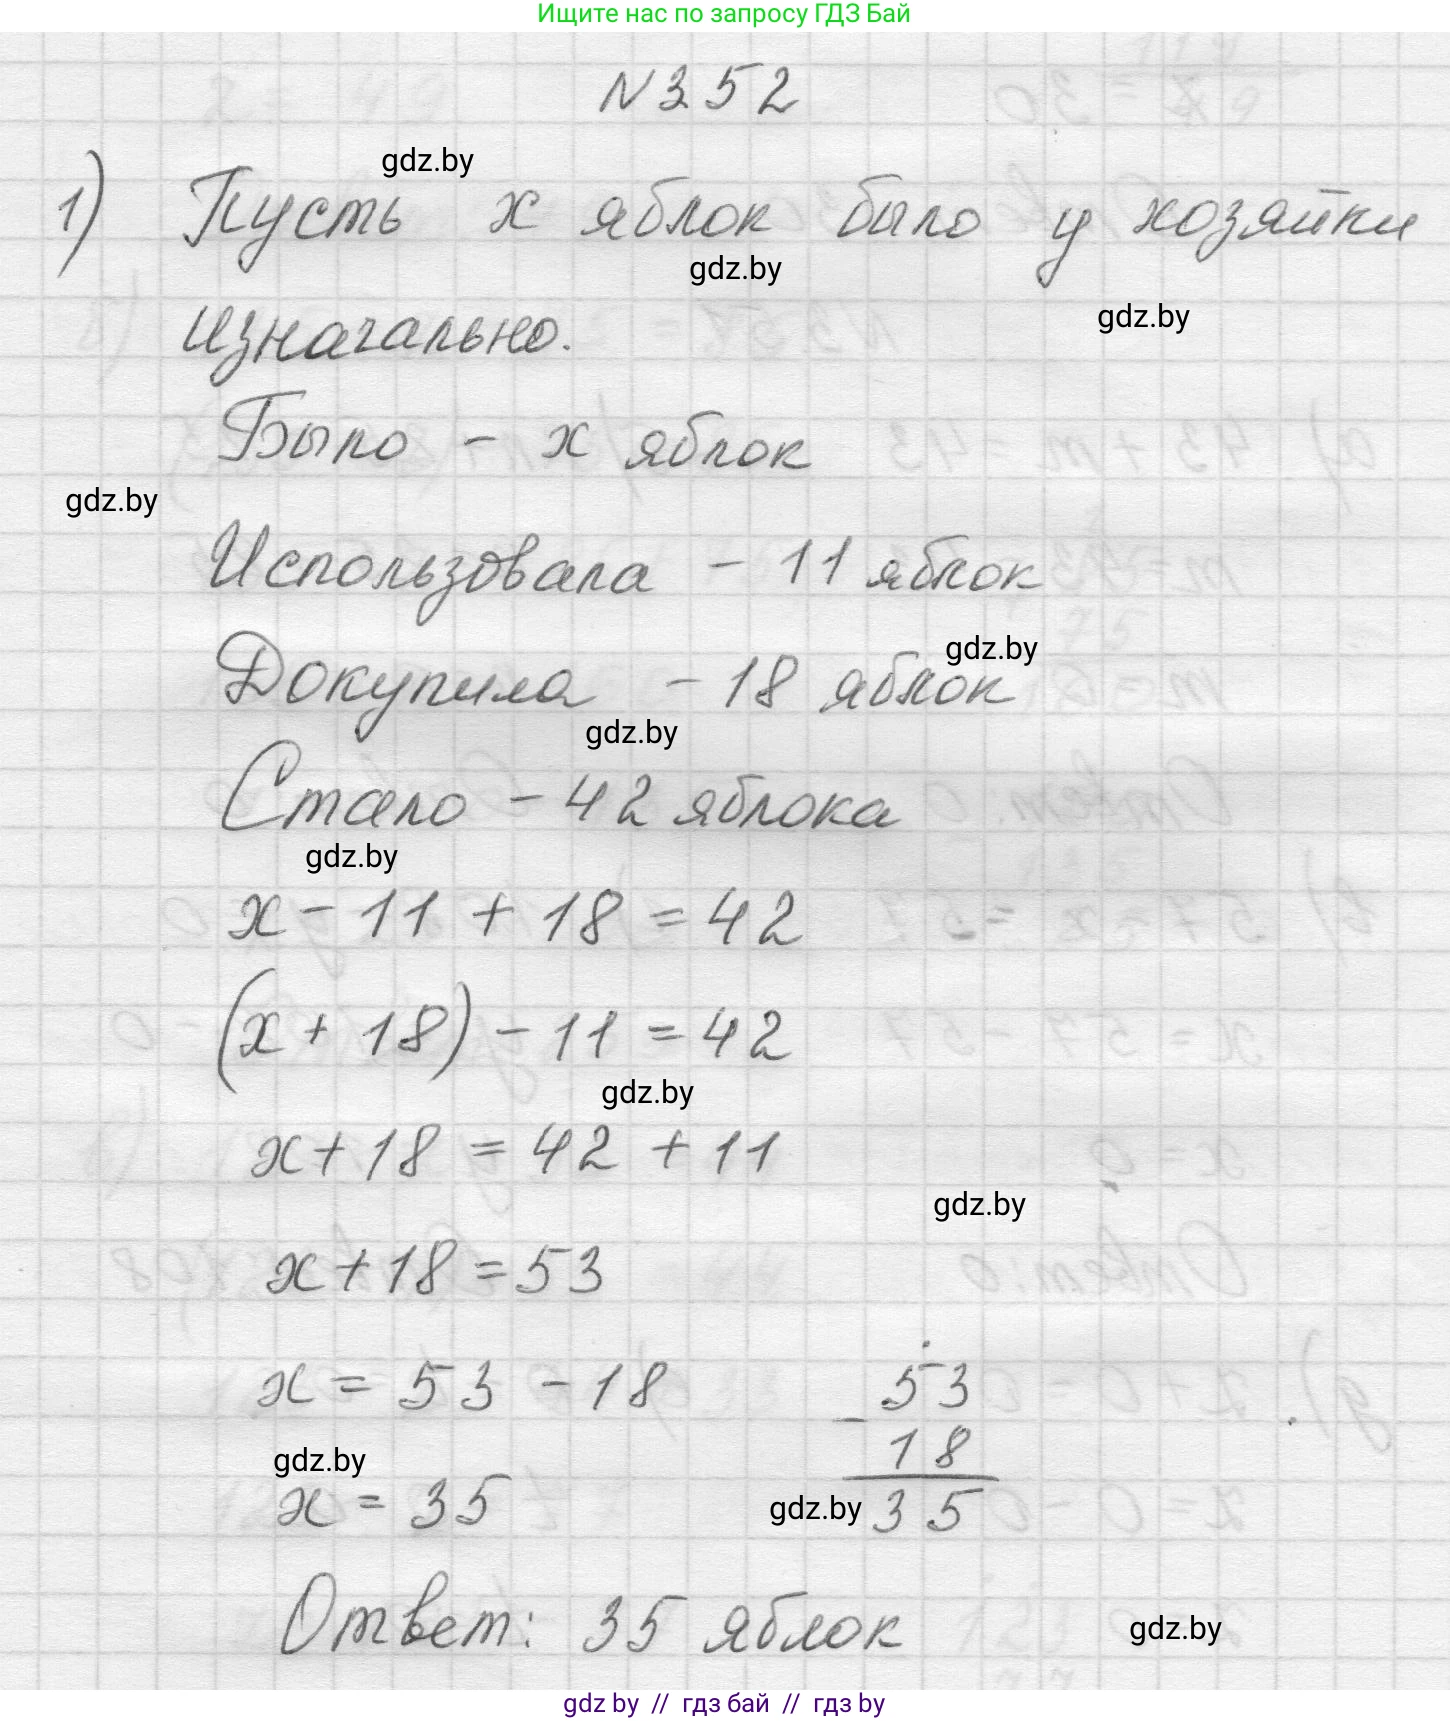 Ищите нас по запросу ГДЗ Бай
N352
gdz.by
1) Пусть x яблок было у хозяйки
gdz.by
gdz.by
изначально.
Было - x яблок
gdz.by
Использовала - 11 яблок
gdz.by
Докупила - 18 яблок
gdz.by
Стало - 42 яблока
gdz.by
x - 11 + 18 = 42
(x + 18) - 11 = 42
gdz.by
x + 18 = 42 + 11
gdz.by
x + 18 = 53
x = 53 - 18
53
- 18
gdz.by
x = 35
gdz.by
35
Ответ: 35 яблок
gdz.by
gdz by // гдз бай // гдз by